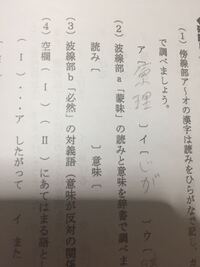 (1) 傍線部ア〜オの漢字は読みをひらがなで記し、
で調べましょう。
ア〔原理〕イ〔じが〕ウ〔
(2) 波線部a「蒙昧」の読みと意味を辞書で調べま
読み〔 〕意味〔
(3) 波線部b「必然」の対義語(意味が反対の関係
(4) 空欄(Ⅰ)(Ⅱ)にあてはまる語と
(Ⅰ)・・・・ア したがって イ また